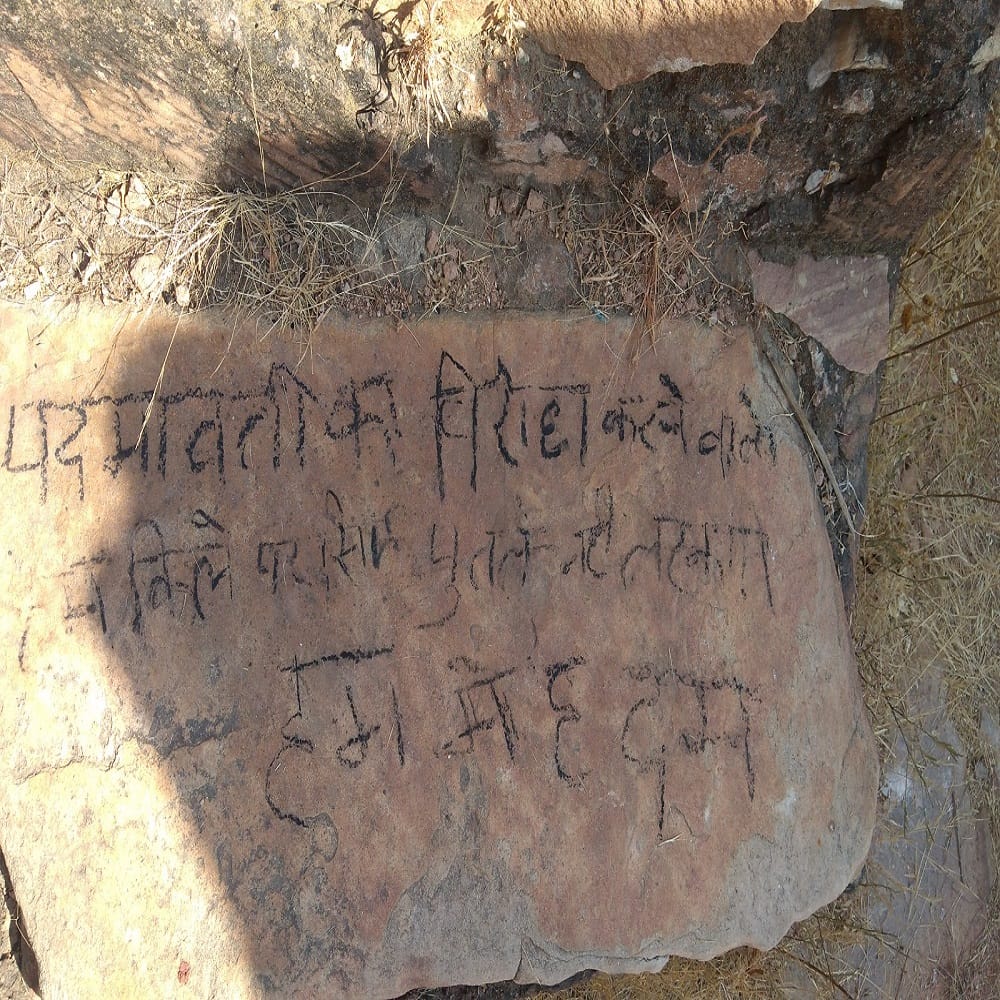 पदमावती का विरोध करने वालो
हम किले पर सिर्फ पुतले नही लटकाते
हम मे है दम